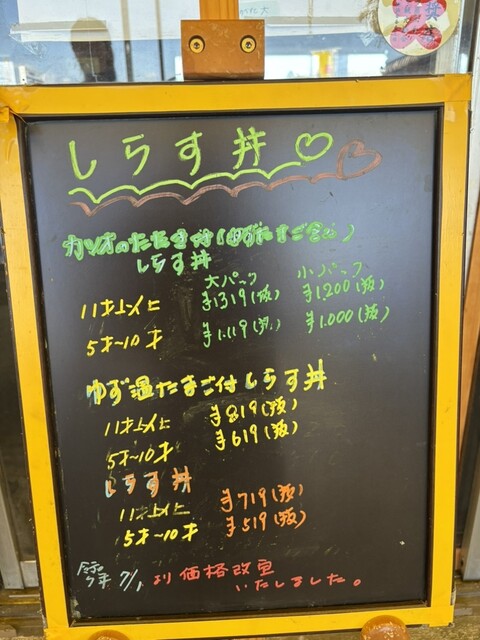 しらす丼♡♡
カツオのたたき付(ゆずたまご含む)
しらす丼
大パック 小パック
11才以上 ¥1319(税) ¥1.200(税)
5才～10才 ¥1.119(税) ¥1.000(税)
ゆず温たまご付しらす丼
11才以上 ¥819(税)
5才～10才 ¥619(税)
しらす丼
11才以上 ¥719(税)
5才～10才 ¥519(税)
7/1より価格改更
いたしました。